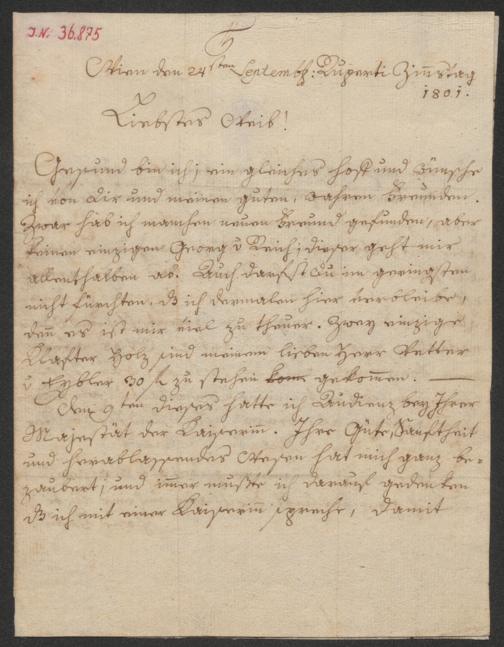 I.N. 36.875
Wien den 24sten Septembr: Ruperti Zinstag
1801.
Liebstes Weib!
Gesund bin ich; ein gleiches hoff und wünsche
ich von dir und meinen guten, wahren Freunden.
Zwar hab ich manchen neuen Freund gefunden, aber
keinen einzigen Georg v Reich; dieser geht mir
allenthalben ab. Auch darfst du im geringsten
nicht fürchten, dß ich dermalen hier verbleibe,
denn es ist mir viel zu theuer. Zwey einzige
Klafter Holz sind meinem lieben Herr Vetter
v Eybler 30 f zu stehen gekommen. —
Den 9ten dieses hatte ich Audienz bey Ihrer
Majestät der Kaiserinn. Ihre Güte, Sanftheit
und herablassendes Wesen hat mich ganz be-
zaubert; und immer mußte ich darauf gedenken
dß ich mit einer Kaiserinn spreche, damit